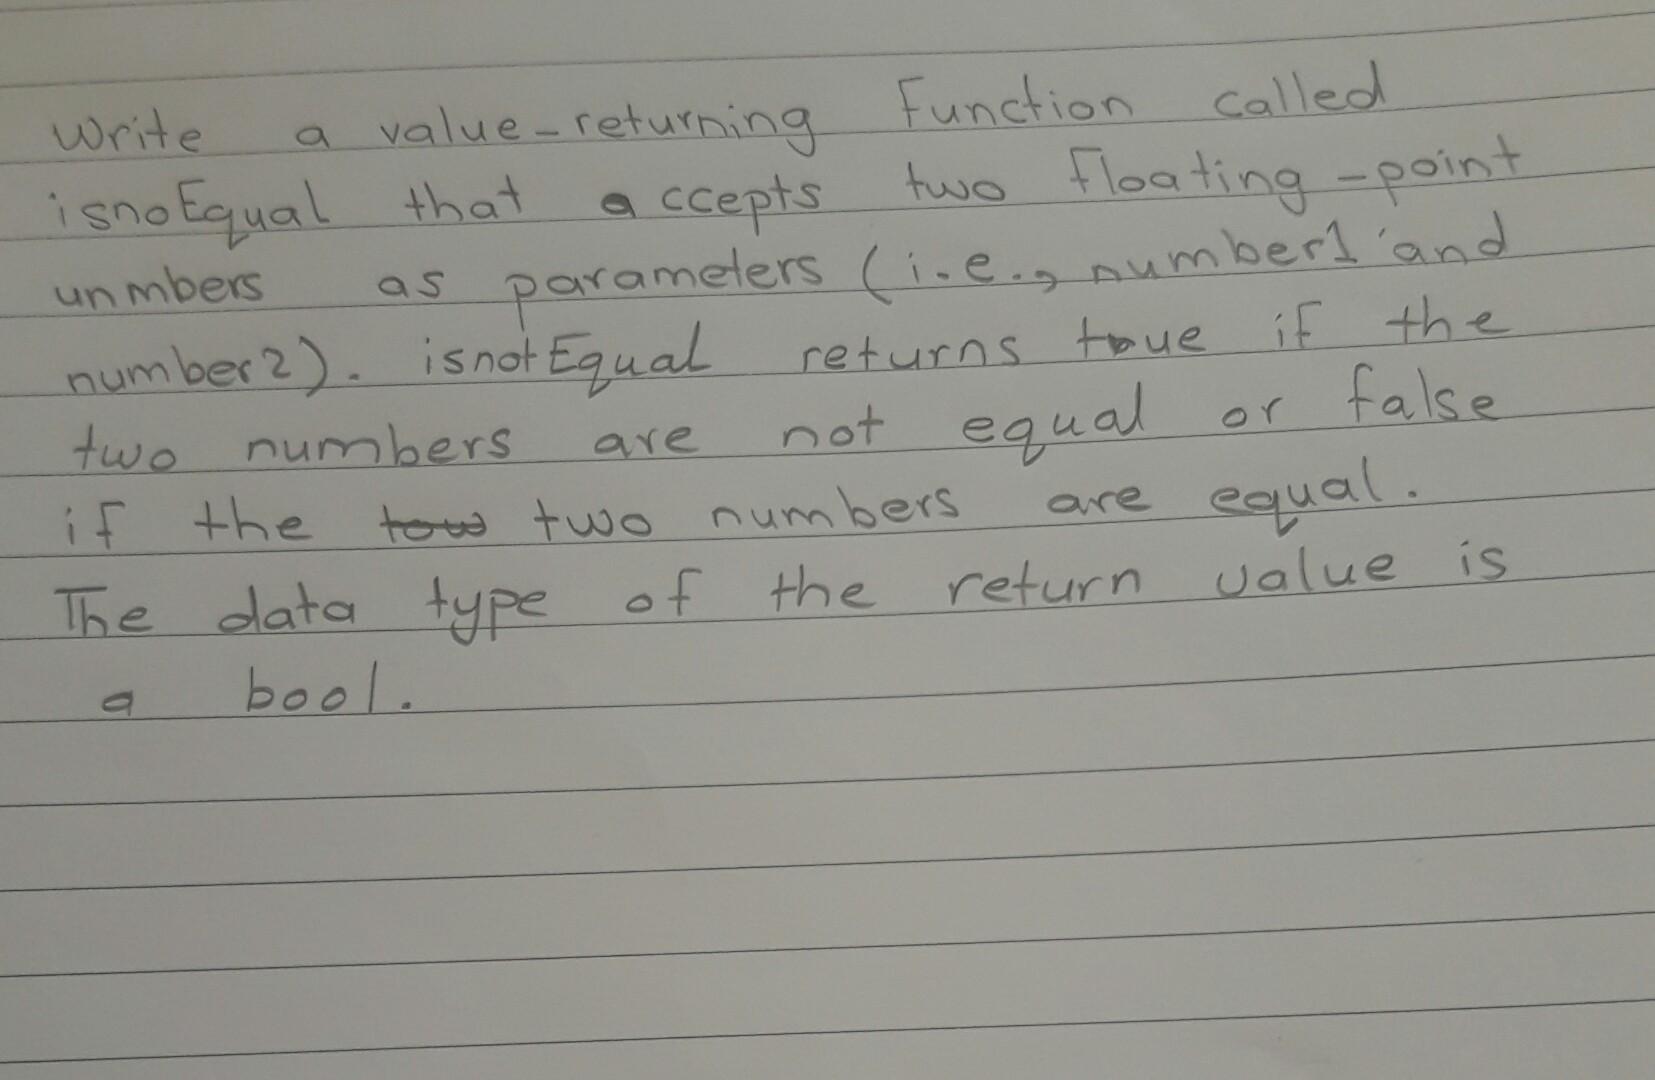 Write a value-returning Function called
isnoEqual that accepts two floating-point
unmbers as parameters (i.e., number1 and
number2). isnotEqual returns true if the
two numbers are not equal or false
if the tow two numbers are equal.
The data type of the return value is
a bool.